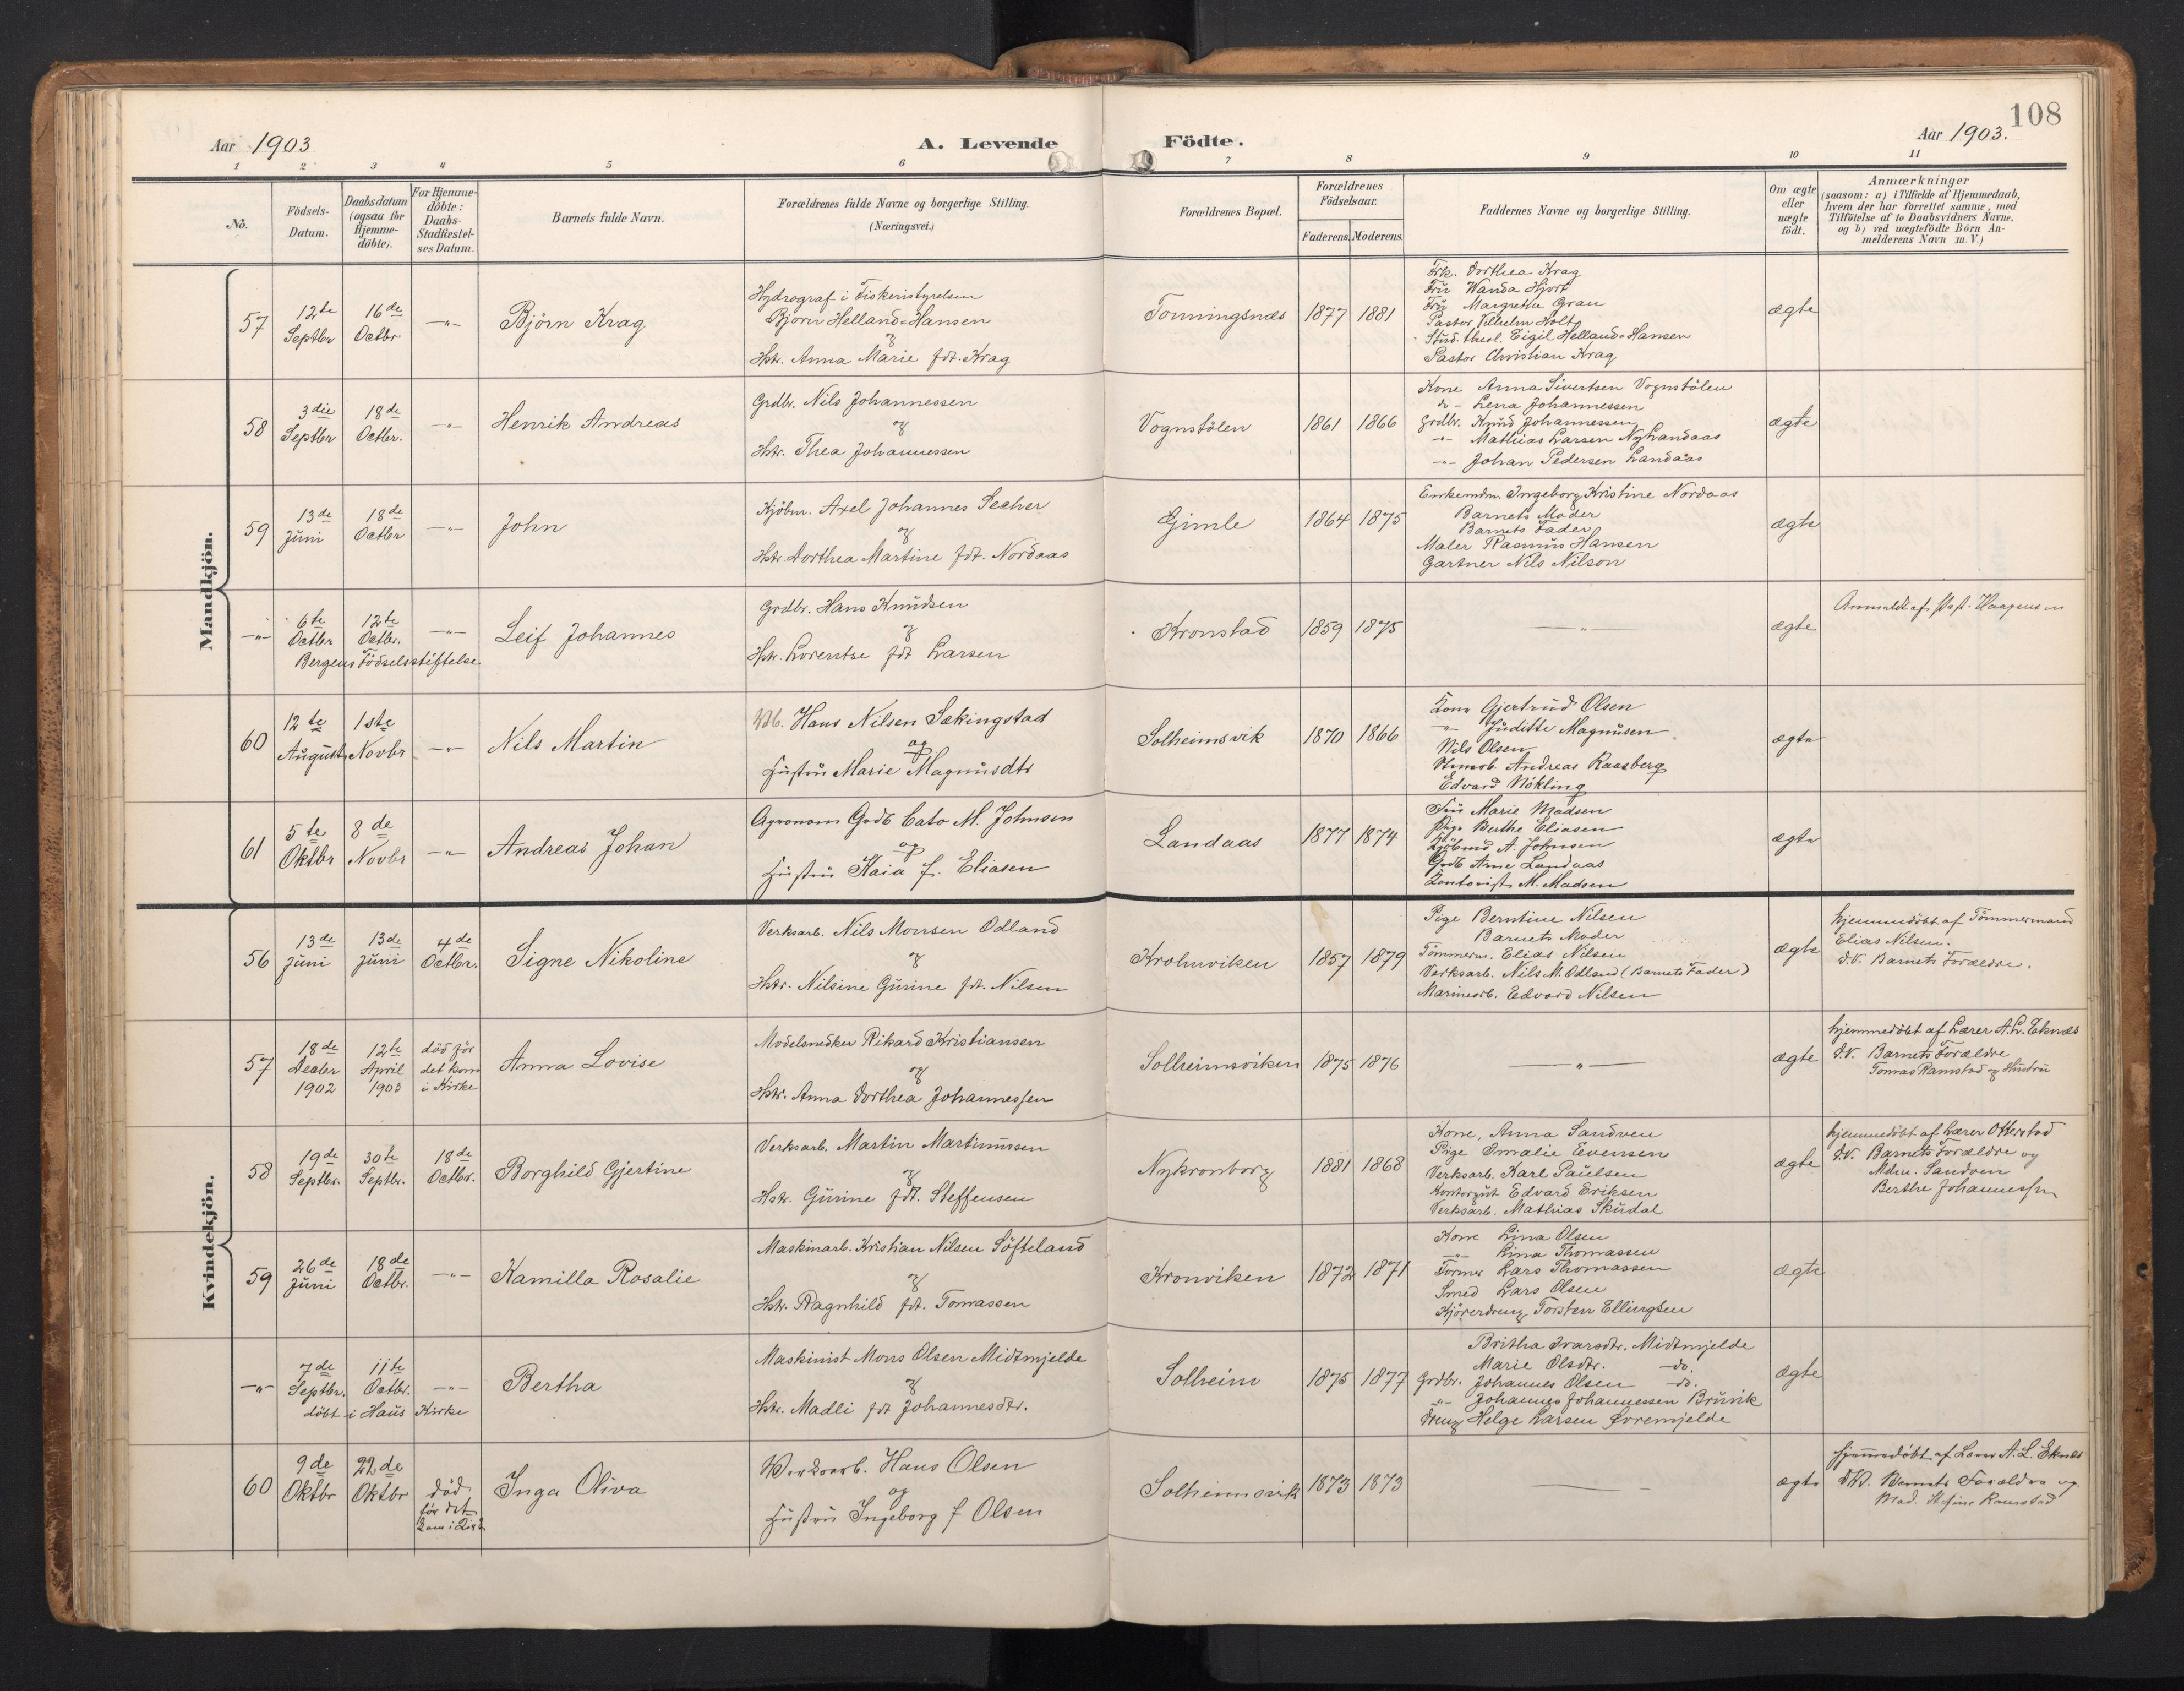 108
Aar 1903
A. Levende
Födte.
Aar 1903.
1 2 3 4 5 6 7 8 9 10 11
No.
Födsels-
Datum.
Daabsdatum
(ogsaa for
Hjemme-
döbte).
For Hjemme-
döbte:
Daabs-
Stadfæstel-
ses Datum.
Barnets fulde Navn.
Forældrenes fulde Navne og borgerlige Stilling.
(Næringsvei.)
Forældrenes Bopæl.
Forældrenes
Födselsaar.
Faderens. Moderens.
Faddernes Navne og borgerlige Stilling.
Om ægte
eller
uægte
födt.
Anmærkninger
(saasom: a) i Tilfælde af Hjemmedaab,
hvem der har forrettet samme, med
Tilföielse af to Daabsvidners Navne.
og b) ved uægtefödte Börn An-
melderens Navn m.V.)
Mandkjön.
57
12te
Septbr
16de
Octbr
-"-
Björn Krag
Hydrograf i Fiskeristyrelsen
Bjørn Helland-Hansen
og
Hstr. Anna Marie fdt. Krag
Tonningsnæs
1877 1881
Frk. Dorthea Krag
Frü Wanda Hjort
Frü Margretha Gran
Pastor Vilhelm Holt
Stud. theol. Eigil Helland-Hansen
Pastor Christian Krag
ægte
58
3die
Septbr
18de
Octbr.
-"-
Henrik Andreas
Grdbr. Nils Johannessen
og
Hstr. Thea Johannessen
Vognstölen
1861 1866
Kone Anna Sivertsen Vognstölen
do - Lena Johannessen
Grdbr. Knüd Johannessen
-"- Mathias Larsen Nylandaas
-"- Johan Pedersen Landaas
ægte
59
13de
Jüni
18de
Octbr
-"-
John
Kjöbm. Axel Johannes Secher
og
Hstr. Dorthea Martine fdt. Nordaas
Gimle
1864 1875
Enkemdm. Ingeborg Kristine Nordaas
Barnets Moder
Barnets Fader
Maler Rasmus Hansen
Gartner Nils Nilson
ægte
-"-
6te
Octbr
12te
Octbr.
-"-
Bergens Födselsstiftelse
Leif Johannes
Grdbr. Hans Knüdsen
og
Hstr. Lorentse fdt Larsen
Kronstad
1859 1875
-"-
ægte
Anmeldt af Past. Haagensen
60
12te
Augüst
1ste
Novbr
-"-
Nils Martin
Vb. Hans Nilsen Sækingstad
og
Hüstrü Marie Magnüsdtr
Solheimsvik
1870 1866
Kone Gjertrüd Olsen
" Jüditte Magnüsen
Nils Olsen
Andreas Raasberg
Edvard Nökling
ægte
61
5te
Oktbr
8de
Novbr
-"-
Andreas Johan
Agronom Grdb Cato M. Johnsen
og
Hüstrü Kaia f. Eliasen
Landaas
1877 1874
Frü Marie Madsen
Pige Berthe Eliasen
Kjöbmd A. Johnsen
Grdb Arne Landaas
Kontorist M. Madsen
ægte
Kvindekjön.
56
13de
Jüni
13de
Jüni
4de
Octbr.
Signe Nikoline
Verksarb. Nils Monsen Odland
og
Hstr. Nilsine Gürine fdt. Nilsen
Krohnviken
1857 1879
Pige Berntine Nilsen
Barnets Moder
Tömmerm. Elias Nilsen
Verksarb. Nils M. Odland (Barnets Fader)
Marinearb. Edvard Nilsen
ægte
hjemmedöbt af Tömmermand
Elias Nilsen.
D.V. Barnets Forældre.
57
18de
Decbr
1902
12te
April
1903
död för
det kom
i Kirke
Anna Lovise
Modelsnedker Rikard Kristiansen
og
Hstr. Anna Dorthea Johannessen
Solheimsviken
1875 1876
-"-
ægte
hjemmedöbt af Lærer A.L. Eknæs
D.V. Barnets Forældre
Tomas Ramstad og Hüstrü
58
19de
Septbr.
30te
Septbr.
18de
Octbr.
Borghild Gjertine
Verksarb. Martin Martinüssen
og
Hstr. Gürine fdt. Steffensen
Nykronborg
1881 1868
Kone, Anna Sandven
Pige Omalie Evensen
Verksarb. Karl Paülsen
Kontorgüt Edvard Eriksen
Verksarb. Mathias Skürdal
ægte
hjemmedöbt af Lærer Otterstad
D.V. Barnets Forældre og
Mdm. Sandven
Berthe Johannessen
59
26de
Jüni
18de
Octbr.
-"-
Kamilla Rosalie
Maskinarb. Kristian Nilsen Söfteland
og
Hstr. Ragnhild fdt. Tomassen
Kronviken
1872 1871
Kone Lina Olsen
-"- Lina Thomassen
Former Lars Thomassen
Smed Lars Olsen
Kjöredreng Torsten Ellingsen
ægte
-"-
7de
Septbr.
11te
Octbr.
-"-
döbt i Haüs Kirke
Bertha
Maskinist Mons Olsen Midtmjelde
og
Hstr. Madli fdt Johannesdtr.
Solheim
1875 1877
Britha Ivarsdtr. Midtmjelde
Marie Olsdtr. -do.
Grdbr. Johannes Olsen -do.
-"- Johannes Johannessen Brüvik
Dreng Helge Larsen Øvremjelde
ægte
60
9de
Oktbr
22de
Oktbr
död
för det
kom i Kirke
Inga Oliva
Werksarb. Hans Olsen
og
Hüstrü Ingeborg f Olsen
Solheimsvik
1873 1873
ægte
hjemmedöbt af Lærer A.L. Eknes
D.V. Barnets Forældre og
Mad. Stefine Ramstad